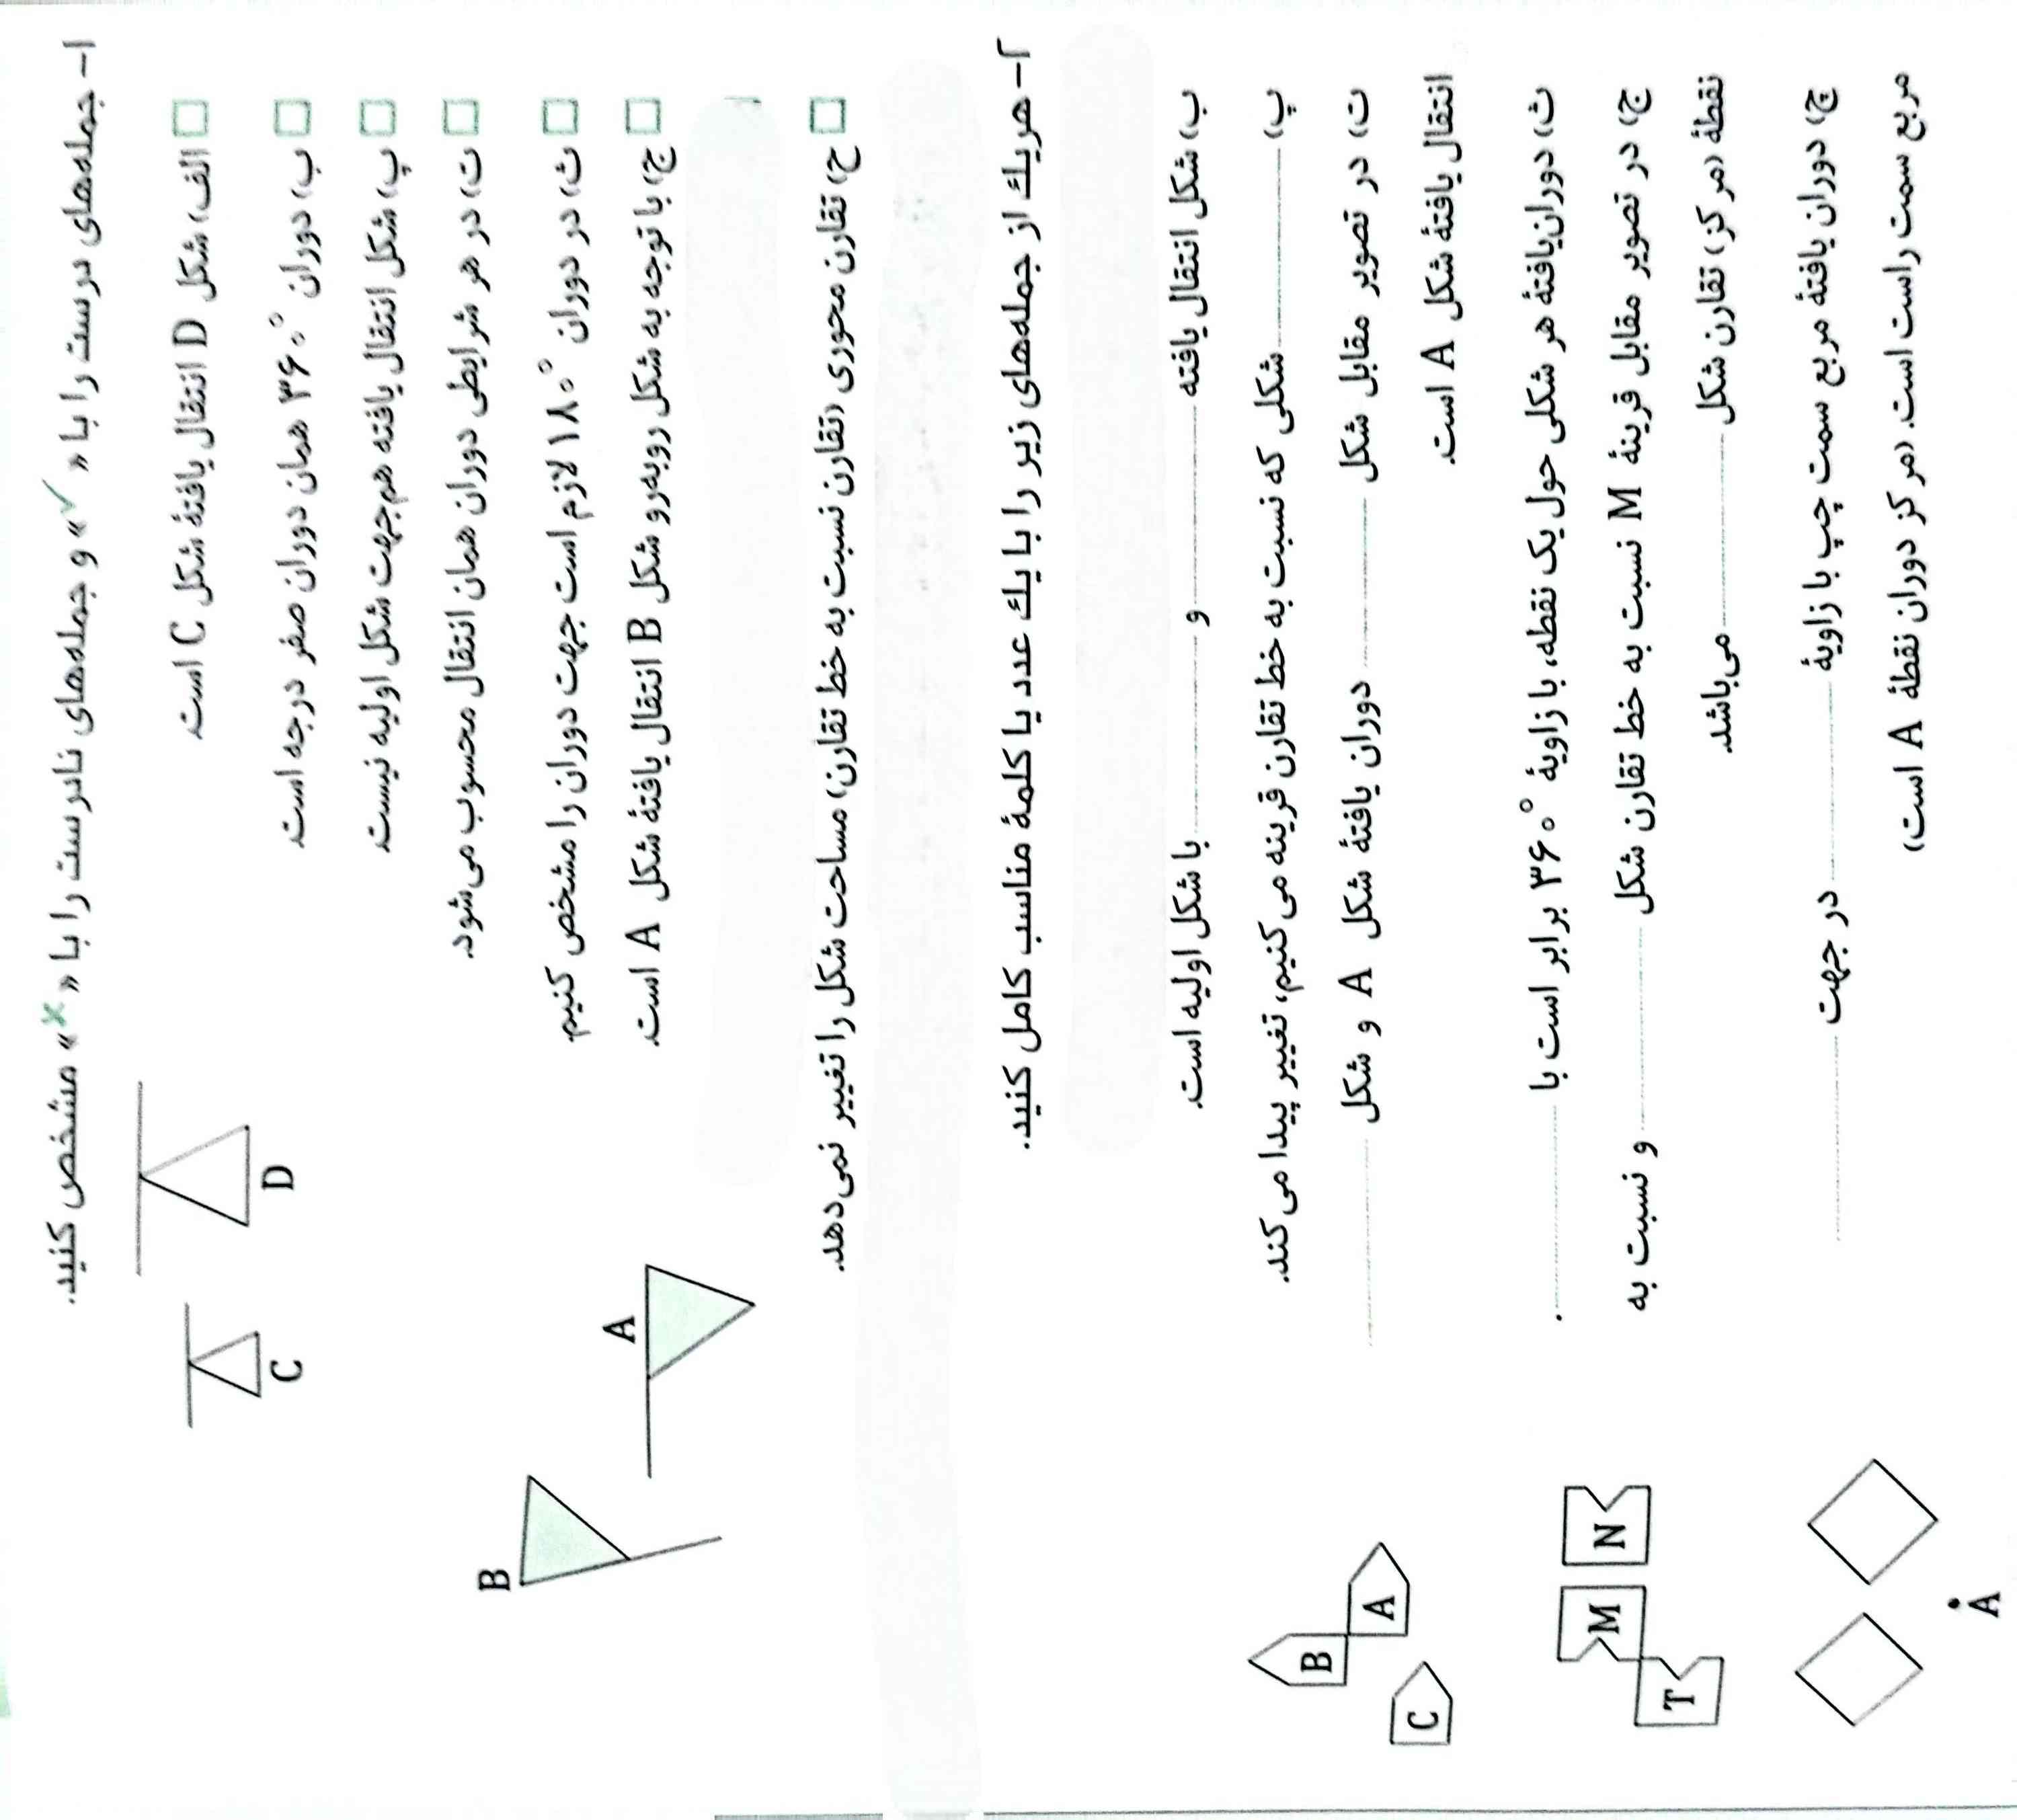 ۱- جمله‌های درست را با « ✓ » و جمله‌های نادرست را با « × » مشخص کنید.
□ الف) شکل D انتقال یافتهٔ شکل C است.
□ ب) دوران ۳۶۰° همان دوران صفر درجه است.
□ پ) شکل انتقال یافته هم‌جهت شکل اولیه نیست.
□ ت) در هر شرایطی دوران همان انتقال محسوب می‌شود.
□ ث) در دوران ۱۸۰° لازم است جهت دوران را مشخص کنیم.
□ ج) با توجه به شکل روبه‌رو شکل B انتقال یافتهٔ شکل A است.
□ ح) تقارن محوری (تقارن نسبت به خط تقارن) مساحت شکل را تغییر نمی‌دهد.
C
D
A
B
۲- هریک از جمله‌های زیر را با یک عدد یا کلمهٔ مناسب کامل کنید.
ب) شکل انتقال یافته .......... و .......... با شکل اولیه است.
پ) .......... شکلی که نسبت به خط تقارن قرینه می‌کنیم، تغییر پیدا می‌کند.
ت) در تصویر مقابل شکل .......... دوران یافتهٔ شکل A و شکل ..........
انتقال یافتهٔ شکل A است.
ث) دوران‌یافتهٔ هر شکلی حول یک نقطه، با زاویهٔ ۳۶۰° برابر است با .......... .
ج) در تصویر مقابل قرینهٔ M نسبت به خط تقارن شکل .......... و نسبت به
نقطهٔ (مرکز) تقارن شکل .......... می‌باشد.
چ) دوران یافتهٔ مربع سمت چپ با زاویهٔ .......... در جهت ..........
مربع سمت راست است. (مرکز دوران نقطهٔ A است)
B
A
C
M
N
T
A